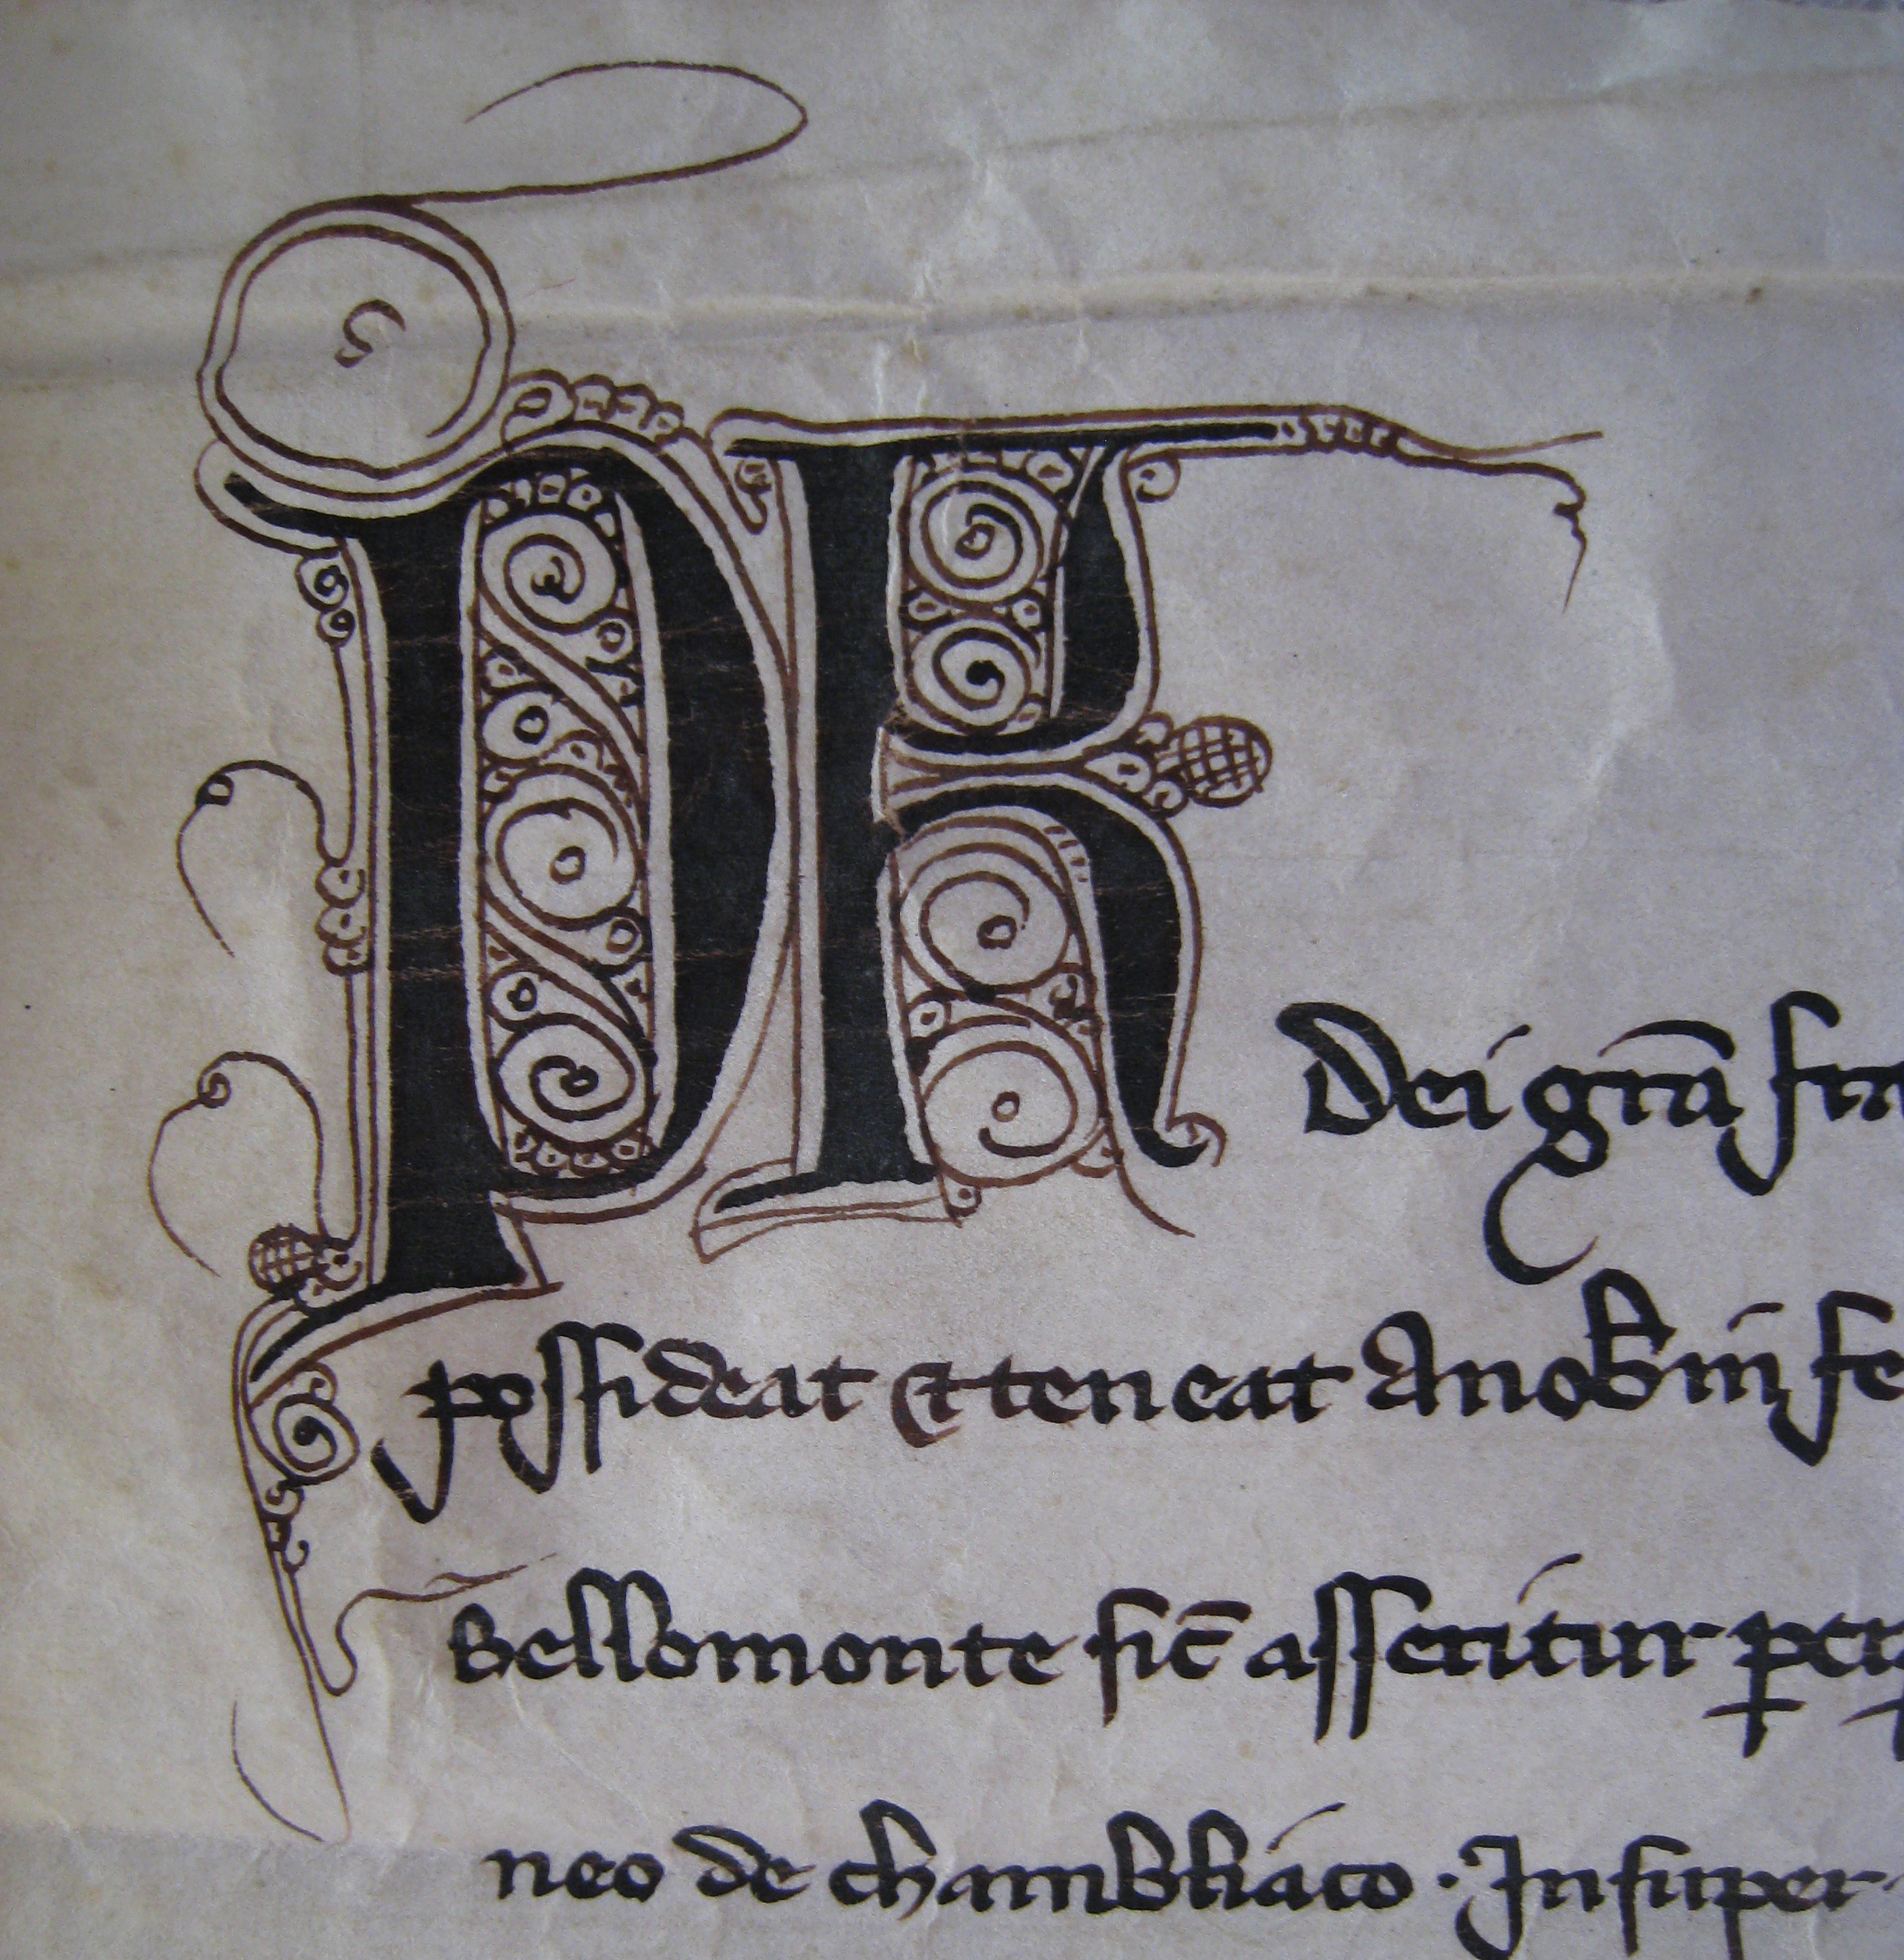 PR Dei grã
possideat et teneat A nob in
Bellomonte sic̃ asseritur
neo de chambliaco . Insuper